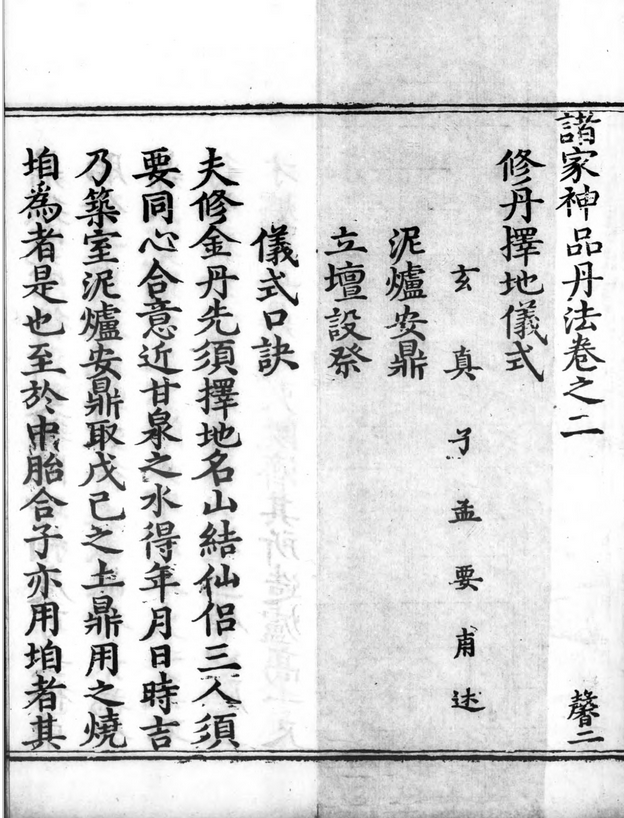 諸家神品丹法卷之二 馨二
修丹擇地儀式
玄真子孟要甫述
泥爐安鼎
立壇設祭
儀式口訣
夫修金丹先須擇地名山結仙侣三人須
要同心合意近甘泉之水得年月日時吉
乃築室泥爐安鼎取戊己之土鼎用之燒
坩為者是也至於中胎合子亦用坩者其